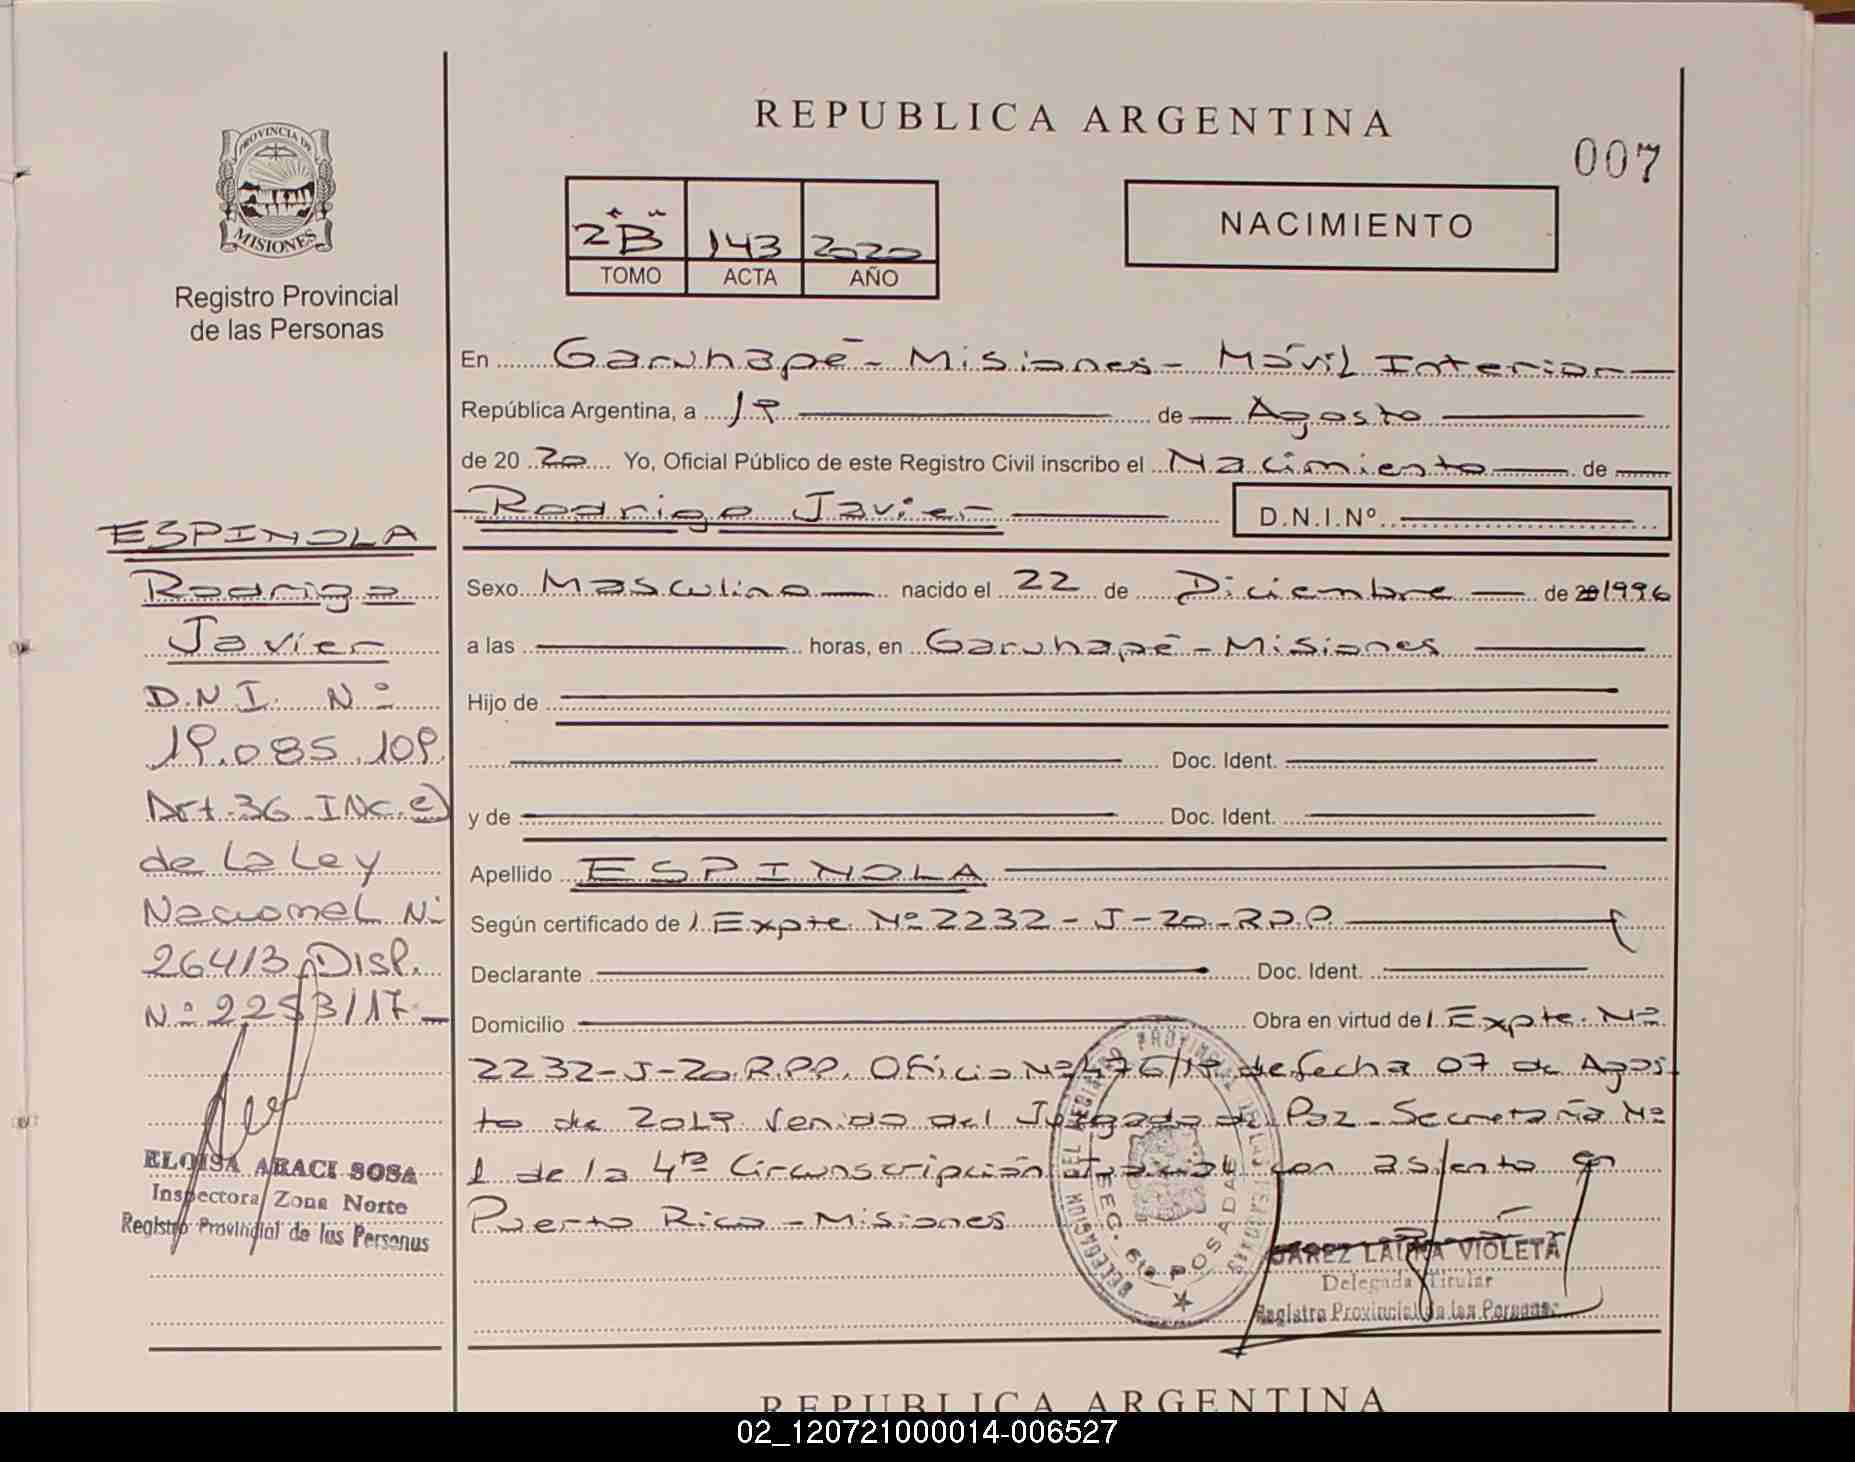 REPUBLICA ARGENTINA
007
PROVINCIA DE
MISIONES
Registro Provincial
de las Personas
2B 143 2020
TOMO ACTA AÑO
NACIMIENTO
En Garuhapé - Misiones - Móvil Interior
República Argentina, a 19 de Agosto
de 20 20 Yo, Oficial Público de este Registro Civil inscribo el Nacimiento de
Rodrigo Javier D.N.I.Nº
Sexo Masculino nacido el 22 de Diciembre de 20/1996
a las horas, en Garuhapé - Misiones
Hijo de
Doc. Ident.
y de Doc. Ident.
Apellido ESPINOLA
Según certificado de / Expte. Nº 2232 - J - 20 - R.P.P.
Declarante Doc. Ident.
Domicilio Obra en virtud de / Expte. Nº
2232-J-20 R.P.P. Oficio Nº 476/19 de fecha 07 de Agos-
to de 2019 venido del Juzgado de Paz - Secretaría Nº
1 de la 4ta Circunscripción Judicial con asiento en
Puerto Rico - Misiones
ESPINOLA
Rodrigo
Javier
D.N.I. Nº
19.085.109
Art. 36 INC. e)
de La Ley
Nacional Nº
26413 DISP.
Nº 2253/17 -
ELOISA ARACI SOSA
Inspectora Zona Norte
Registro Provincial de las Personas
DELEGACION DEL REGISTRO PROVINCIAL DE LAS PERSONAS
SEC. 6ta POSADAS
SUAREZ LAURA VIOLETA
Delegada Titular
Registro Provincial de las Personas
REPUBLICA ARGENTINA
02_120721000014-006527